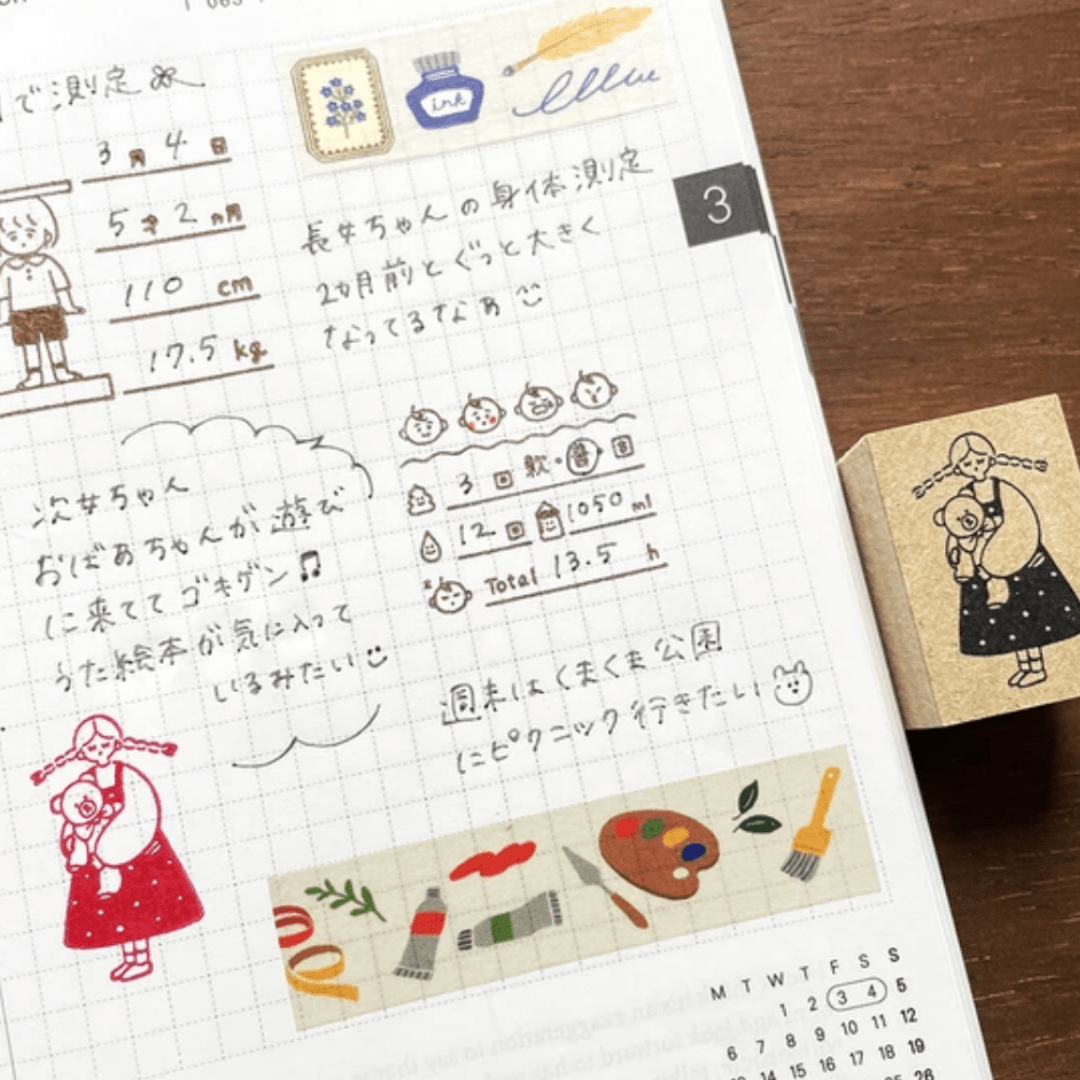 で測定
3月4日
5才2ヵ月
110 cm
17.5 kg.
ink
3
長女ちゃんの身体測定
2ヵ月前とぐっと大きく
なってるなぁ
3回 軟・普・固
12回 1050 ml
Total 13.5 h
次女ちゃん
おばあちゃんが遊び
に来ててゴキゲン♫
うた絵本が気に入って
いるみたい
週末はくまくま公園
にピクニック行きたい
M T W T F S S
1 2 3 4 5
6 7 8 9 10 11 12
14 15 16 17 18 19
26